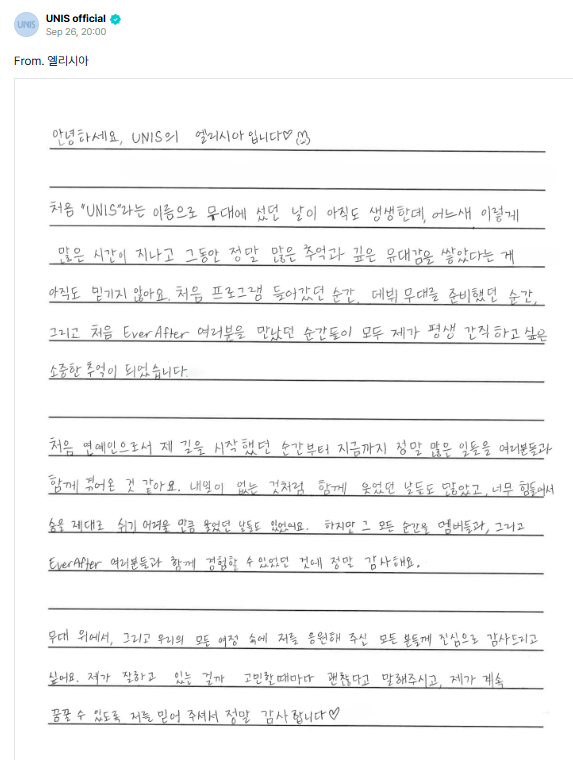 UNIS
UNIS official
Sep 26, 20:00
From. 엘리시아
안녕하세요, UNIS의 엘리시아입니다♡
처음 "UNIS"라는 이름으로 무대에 섰던 날이 아직도 생생한데, 어느새 이렇게
많은 시간이 지나고 그동안 정말 많은 추억과 깊은 유대감을 쌓았다는 게
아직도 믿기지 않아요. 처음 프로그램 들어갔던 순간, 데뷔 무대를 준비했던 순간,
그리고 처음 EverAfter 여러분을 만났던 순간들이 모두 제가 평생 간직하고 싶은
소중한 추억이 되었습니다.
처음 연예인으로서 제 길을 시작했던 순간부터 지금까지 정말 많은 일들을 여러분들과
함께 겪어온 것 같아요. 내일이 없는 것처럼 함께 웃었던 날들도 많았고, 너무 힘들어서
숨을 제대로 쉬기 어려울 만큼 울었던 날들도 있었어요. 하지만 그 모든 순간을 멤버들과, 그리고
EverAfter 여러분들과 함께 경험할 수 있었던 것에 정말 감사해요.
무대 위에서, 그리고 우리의 모든 여정 속에 저를 응원해 주신 모든 분들께 진심으로 감사드리고
싶어요. 제가 잘하고 있는 걸까 고민할때마다 괜찮다고 말해주시고, 제가 계속
꿈꿀 수 있도록 저를 믿어 주셔서 정말 감사합니다♡